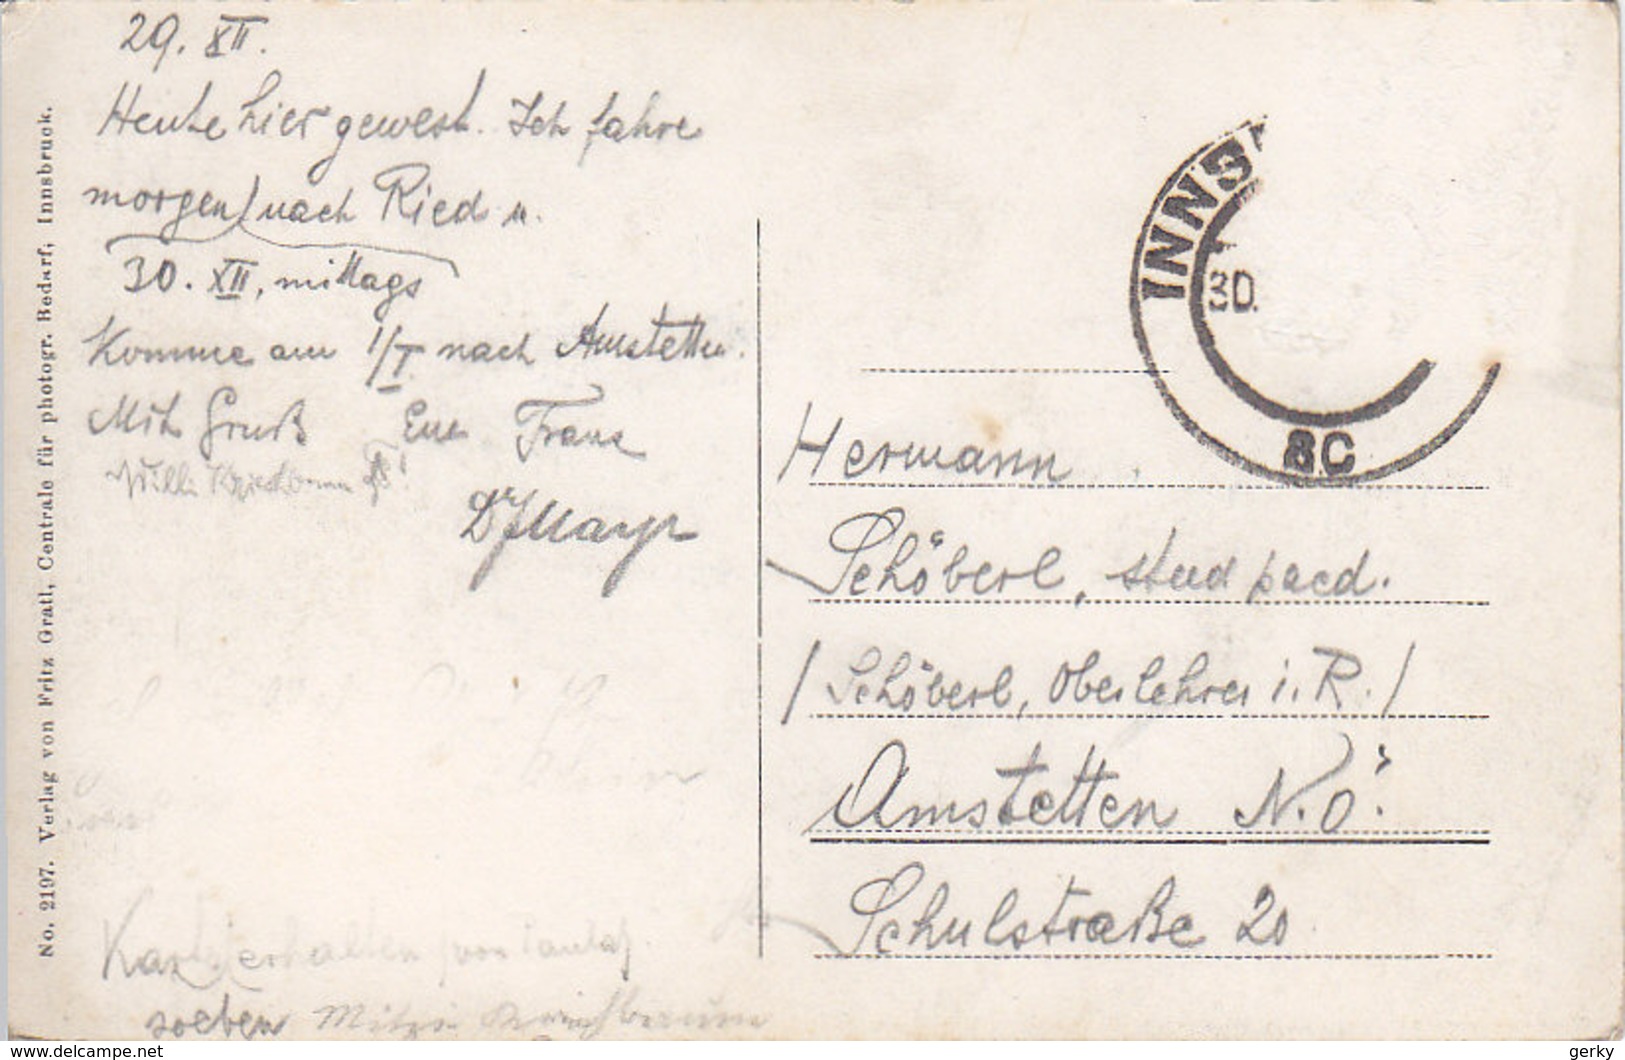 29. XII.
Heute hier gewest. Ich fahre
morgen nach Ried u.
30. XII, mittags
Komme am 1/I. nach Amstetten.
Mit Gruß Euer Franz
Willi
Dr Mayr
Karte erhalten von
soeben Mitzi
No. 2197. Verlag von Fritz Gratl, Centrale für photogr. Bedarf, Innsbruck.
INNSB
30.
8C
Hermann
Schöberl, stud paed.
/ Schöberl, Oberlehrer i. R. /
Amstetten N. Ö.
Schulstraße 20
www.delcampe.net
gerky